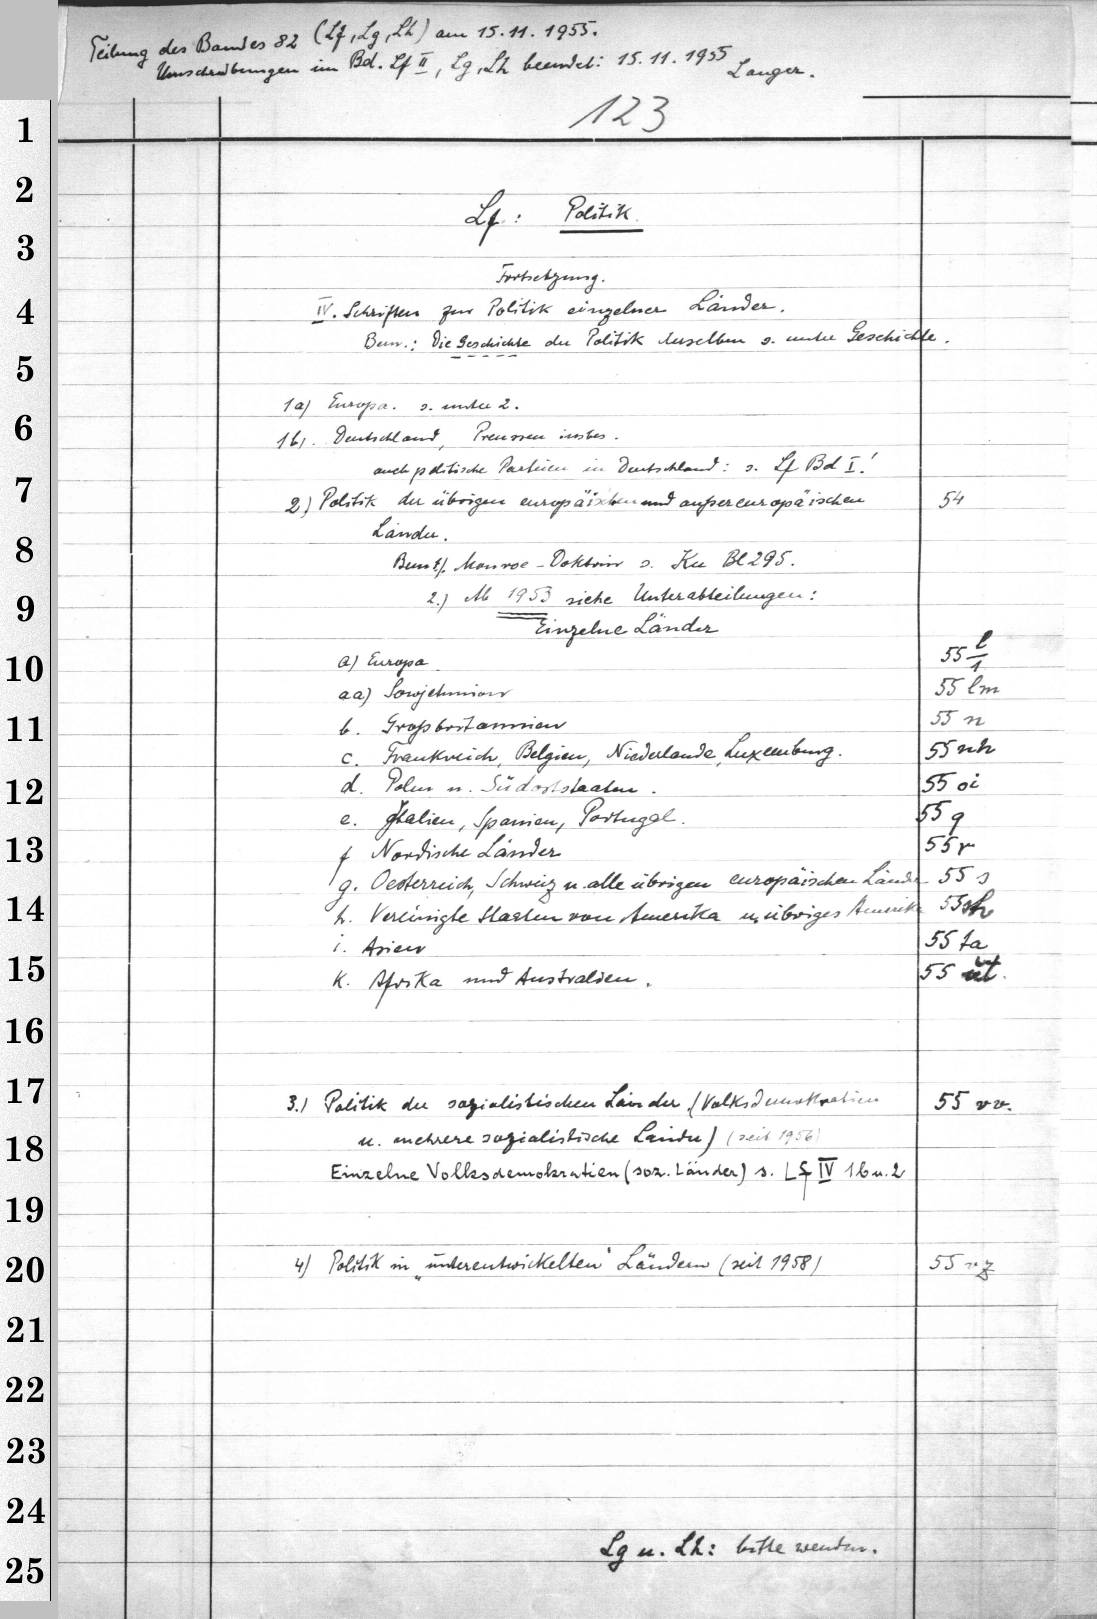 Teilung des Bandes 82 (Lf, Lg, Lh) am 15.11.1955.
Umschreibungen im Bd. Lf II, Lg, Lh beendet: 15.11.1955
Langer.
123
1
2
Lf: Politik
3
Fortsetzung.
4
IV. Schriften zur Politik einzelner Länder.
Bem.: Die Geschichte der Politik derselben s. unter Geschichte.
5
1a) Europa. s. unter 2.
6
1b). Deutschland, Preussen insbes.
auch politische Parteien in Deutschland: s. Lf Bd I!
7
2) Politik der übrigen europäischen und außereuropäischen 54
Länder.
8
Bem 1). Monroe-Doktrin s. Ku Bl 295.
2.) Ab 1953 siehe Unterabteilungen:
9
Einzelne Länder
a) Europa 55 l/1
10
aa) Sowjetunion 55 lm
b. Großbritannien 55 n
11
c. Frankreich, Belgien, Niederlande, Luxemburg. 55 nh
d. Polen u. Südoststaaten. 55 oi
12
e. Italien, Spanien, Portugal. 55 q
13
f Nordische Länder 55 r
g. Oesterreich, Schweiz u. alle übrigen europäischen Länder 55 s
14
h. Vereinigte Staaten von Amerika u. übriges Amerika 55
i. Asien 55 ta
15
k. Afrika und Australien. 55
16
17
3.) Politik der sozialistischen Länder (Volksdemokratien 55 vv.
u. mehrere sozialistische Länder) (seit 1956)
18
Einzelne Volksdemokratien (soz. Länder) s. Lf IV 1b u. 2
19
4) Politik in „unterentwickelten" Ländern (seit 1958) 55 vz
20
21
22
23
24
Lg u. Lh: bitte wenden.
25